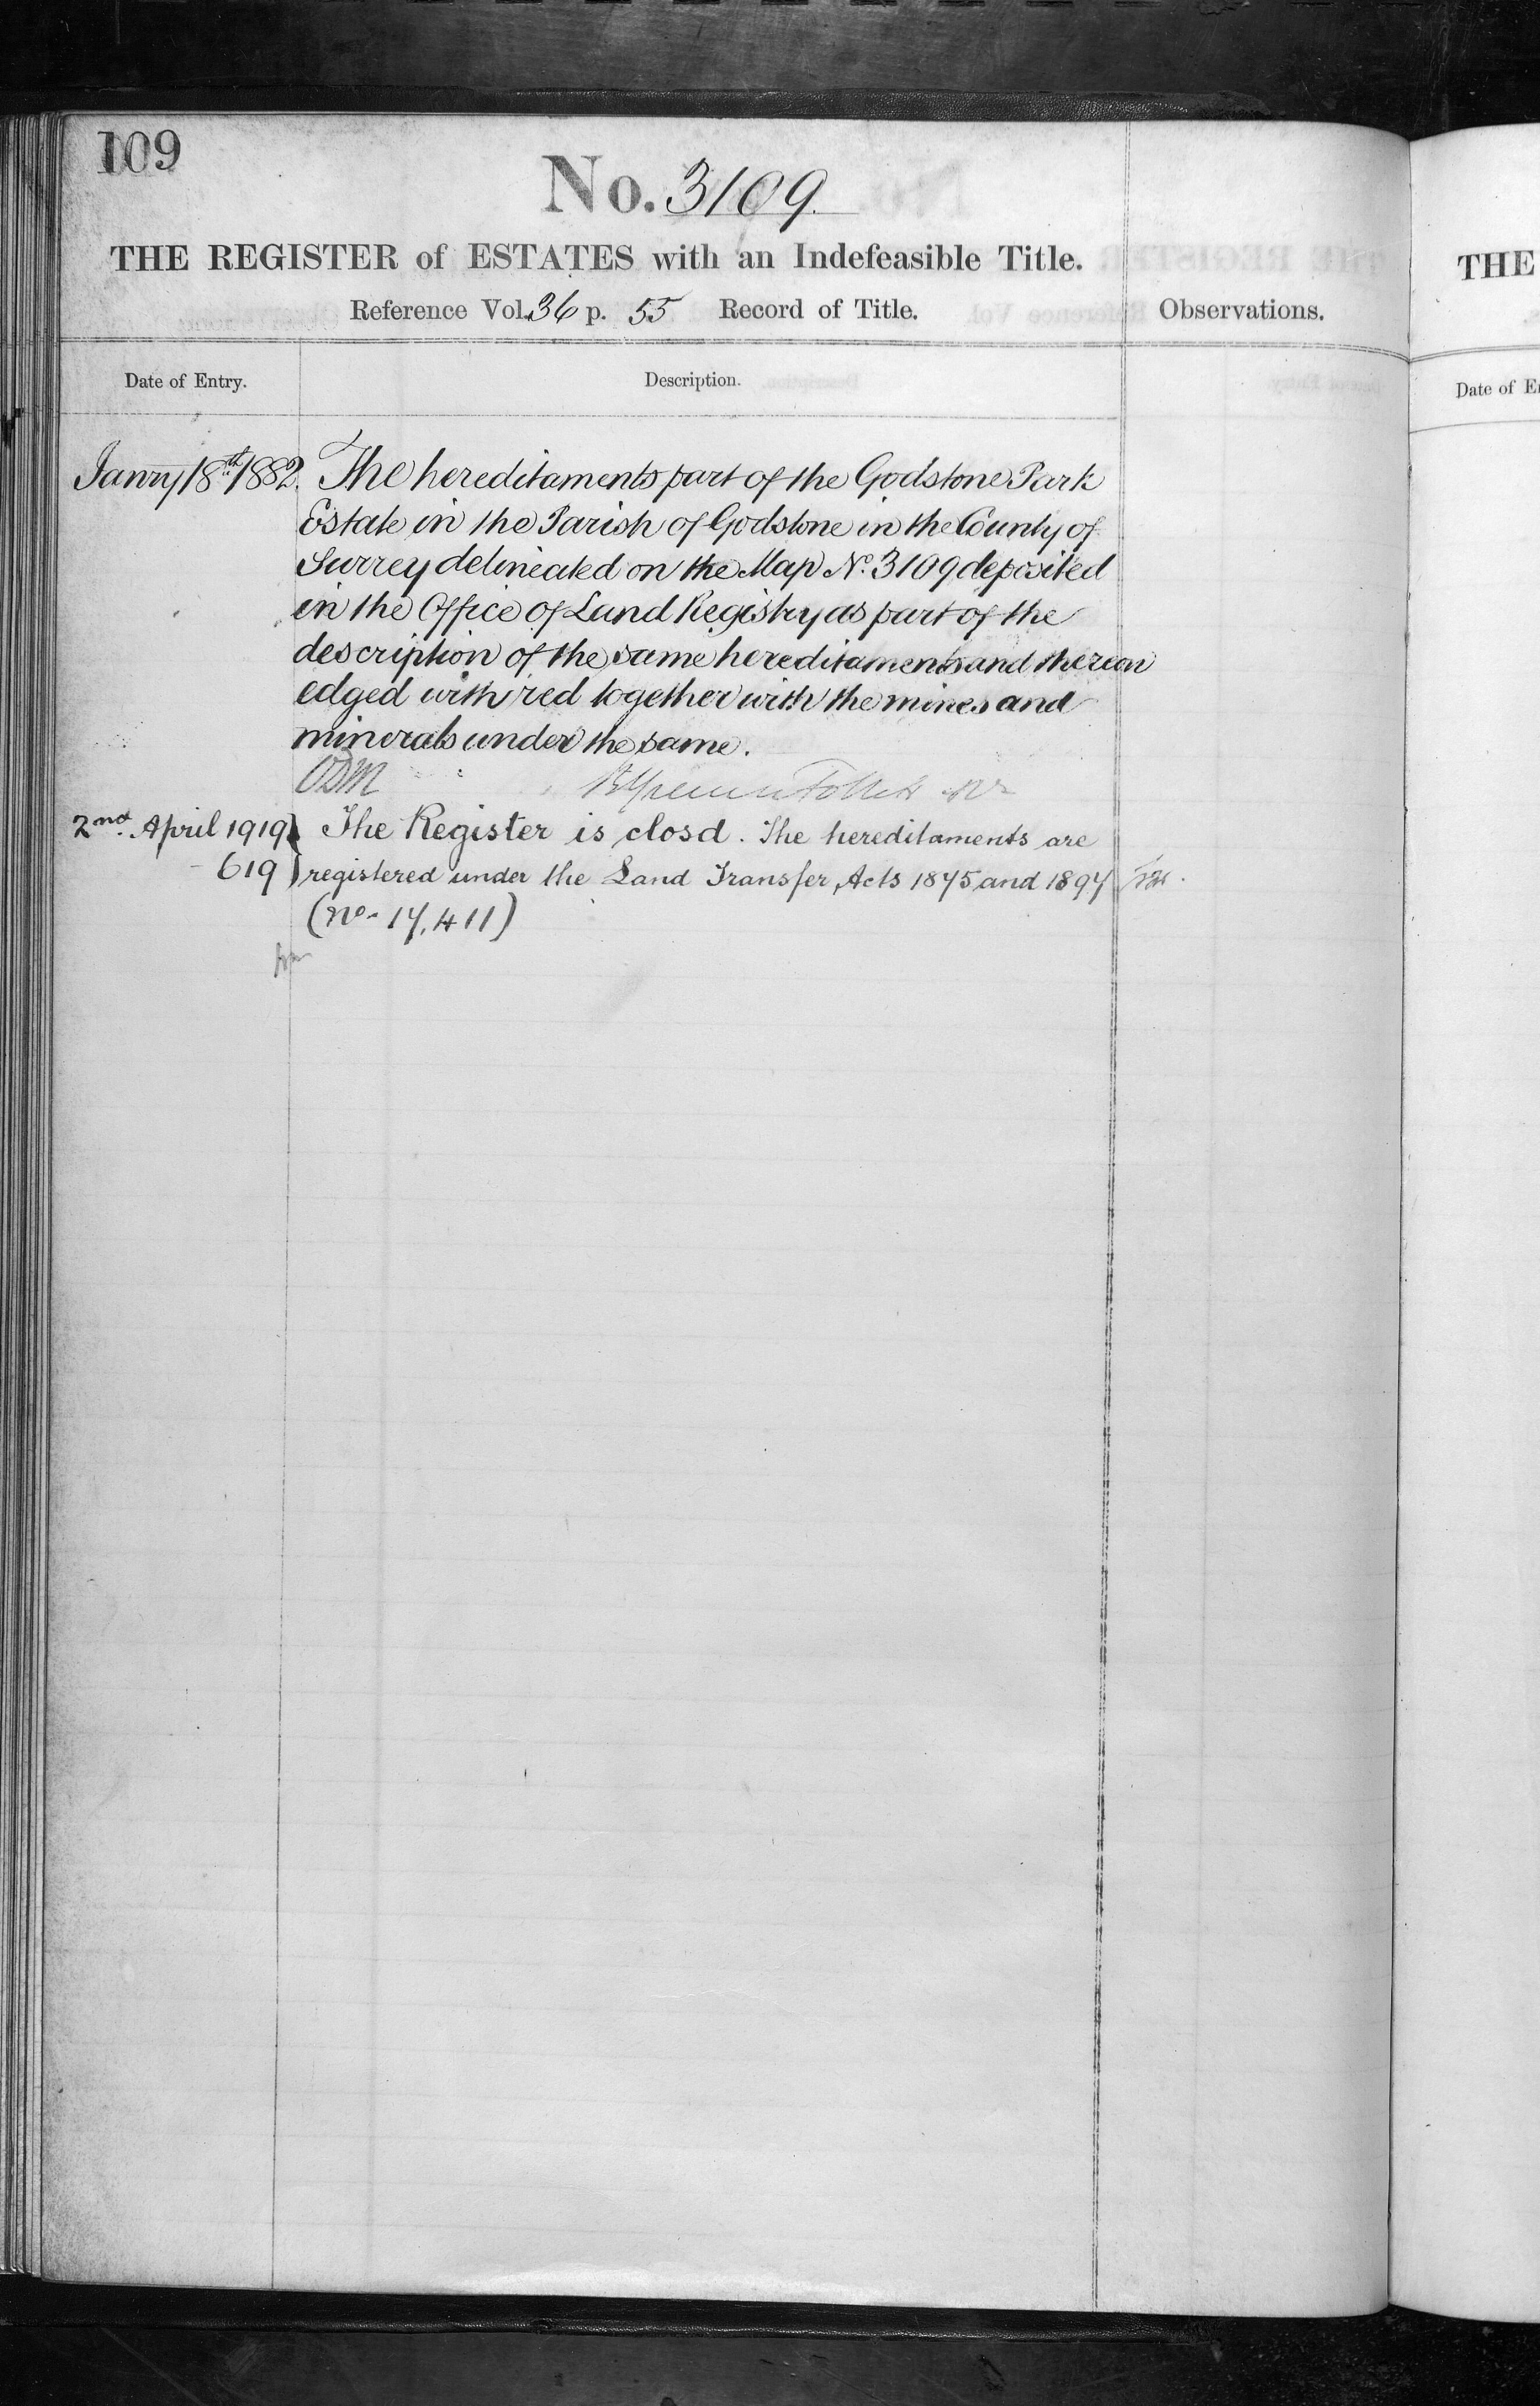 109
No. 3109.
THE REGISTER of ESTATES with an Indefeasible Title.
Reference Vol. 36 p. 55 Record of Title.
Observations.
Date of Entry.
Description.
Janry 18th 1882. The hereditaments part of the Godstone Park
Estate in the Parish of Godstone in the County of
Surrey delineated on the Map No. 3109 deposited
in the Office of Land Registry as part of the
description of the same hereditaments and thereon
edged with red together with the mines and
minerals under the same.
2nd. April 1919 The Register is closd. The hereditaments are
619 registered under the Land Transfer, Acts 1875 and 1897
(No. 17,411)
THE
Date of E